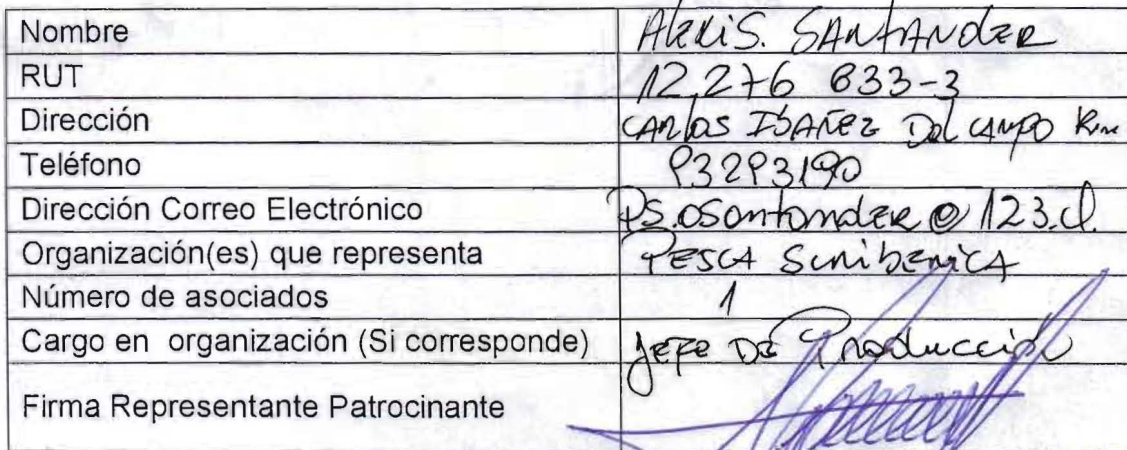 Nombre Alexis. SANTANDER
RUT 12.276 833-3
Dirección CARLOS IBAÑEZ Del CAMPO
Teléfono 93293190
Dirección Correo Electrónico @123.cl.
Organización(es) que representa PESCA
Número de asociados 1
Cargo en organización (Si corresponde) JEFE DE Producción
Firma Representante Patrocinante